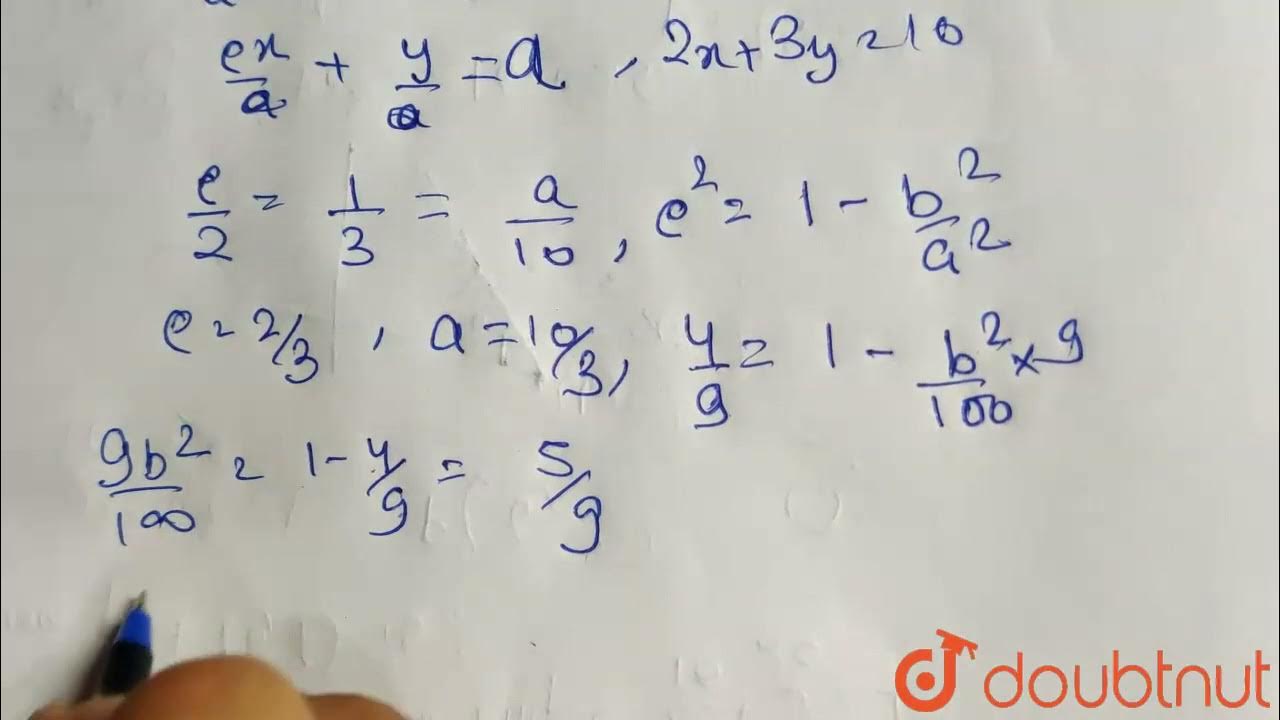 ex/a + y/a = a , 2x+3y=10
e/2 = 1/3 = a/10 , e² = 1 - b²/a²
e = 2/3 , a = 10/3 , 4/9 = 1 - b²/100 × 9
9b²/100 = 1 - 4/9 = 5/9
doubtnut